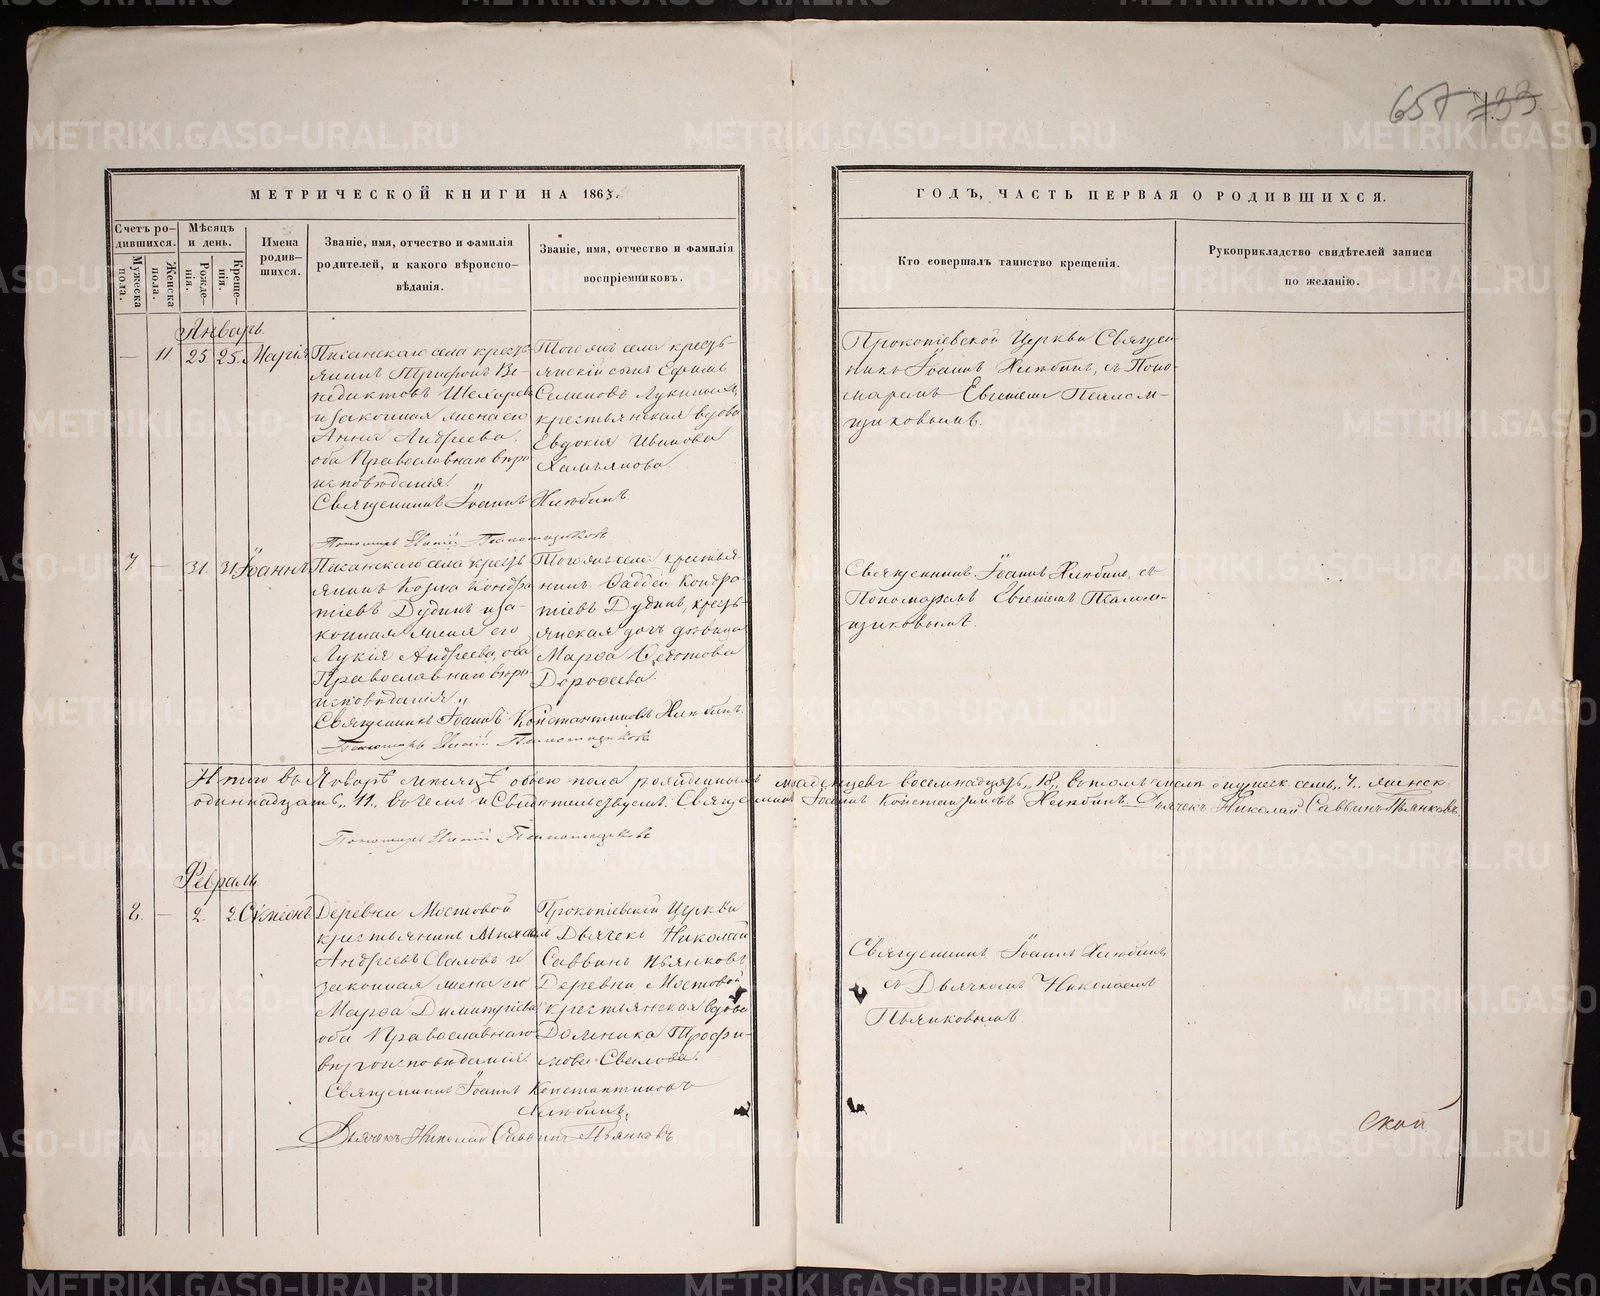 657 733
МЕТРИЧЕСКОЙ КНИГИ НА 186
ГОДЪ, ЧАСТЬ ПЕРВАЯ О РОДИВШИХСЯ.
Счетъ ро-
дившихся.
Мужеска
пола.
Женска
пола.
Мѣсяцъ
и день.
Рожде-
нія.
Креще-
нія.
Имена
родив-
шихся.
Званіе, имя, отчество и фамилія
родителей, и какого вѣроиспо-
вѣданія.
Званіе, имя, отчество и фамилія
воспріемниковъ.
Кто совершалъ таинство крещенія.
Рукоприкладство свидѣтелей записи
по желанію.
Январь.
— 11 25 25 Марія
села кресть-
янинъ Трифонъ Ве-
недиктовъ
и законная жена его
Анна Андреева,
оба Православнаго вѣро
исповѣданія.
Священникъ Іоаннъ Хлюбинъ.
Того же села кресть-
янскій сынъ Ефимъ
Семеновъ Лукиныхъ,
крестьянская вдова
Евдокія Иванова
Прокопіевской Церкви Священ-
никъ Іоаннъ Хлюбинъ, съ Поно-
маремъ Евгеніемъ Псалом-
щиковымъ.
Пономарь Евгеній Псаломщиковъ
7 — 31 31 Іоаннъ
села кресть
янинъ Козма Кондра
тіевъ Дудинъ и за-
конная жена его
Лукія Андреева, оба
Православнаго вѣро-
исповѣданія,,
Священникъ Іоаннъ Константиновъ Хлюбинъ.
Пономарь Евгеній Псаломщиковъ
Того же села крестья
нинъ Фаддей Кондра-
тіевъ Дудинъ, кресть-
янская дочь дѣвица
Марѳа Ѳедотова
Дороѳеева.
Священникъ Іоаннъ Хлюбинъ, съ
Пономаремъ Евгеніемъ Псалом-
щиковымъ.
Итого въ Январѣ мѣсяцѣ обоего пола рожденныхъ младенцевъ восемнадцать,, 18,, въ томъ числѣ мужеск. семь,, 7,, женск.
одиннадцать,, 11,, Въ чемъ и Свидѣтельствуемъ: Священникъ Іоаннъ Константиновъ Хлюбинъ. Дьячекъ Николай Саввинъ Пьянковъ.
Пономарь Евгеній Псаломщиковъ
Февраль
8. — 2. 2. Симеонъ
Деревни Мостовой
крестьянинъ Михаилъ
Андреевъ Сваловъ и
законная жена его
Марѳа Димитріева
оба Православнаго
вѣроисповѣданія.
Священникъ Іоаннъ Константиновъ
Хлюбинъ,
Дьячекъ Николай Саввинъ Пьянковъ
Прокопіевской Церкви
Дьячекъ Николай
Саввинъ Пьянковъ,
Деревни Мостовой
крестьянская вдова
Домника Трофи-
мова Свалова.
Священникъ Іоаннъ Хлюбинъ,
съ Дьячкомъ Николаемъ
Пьянковымъ
ской